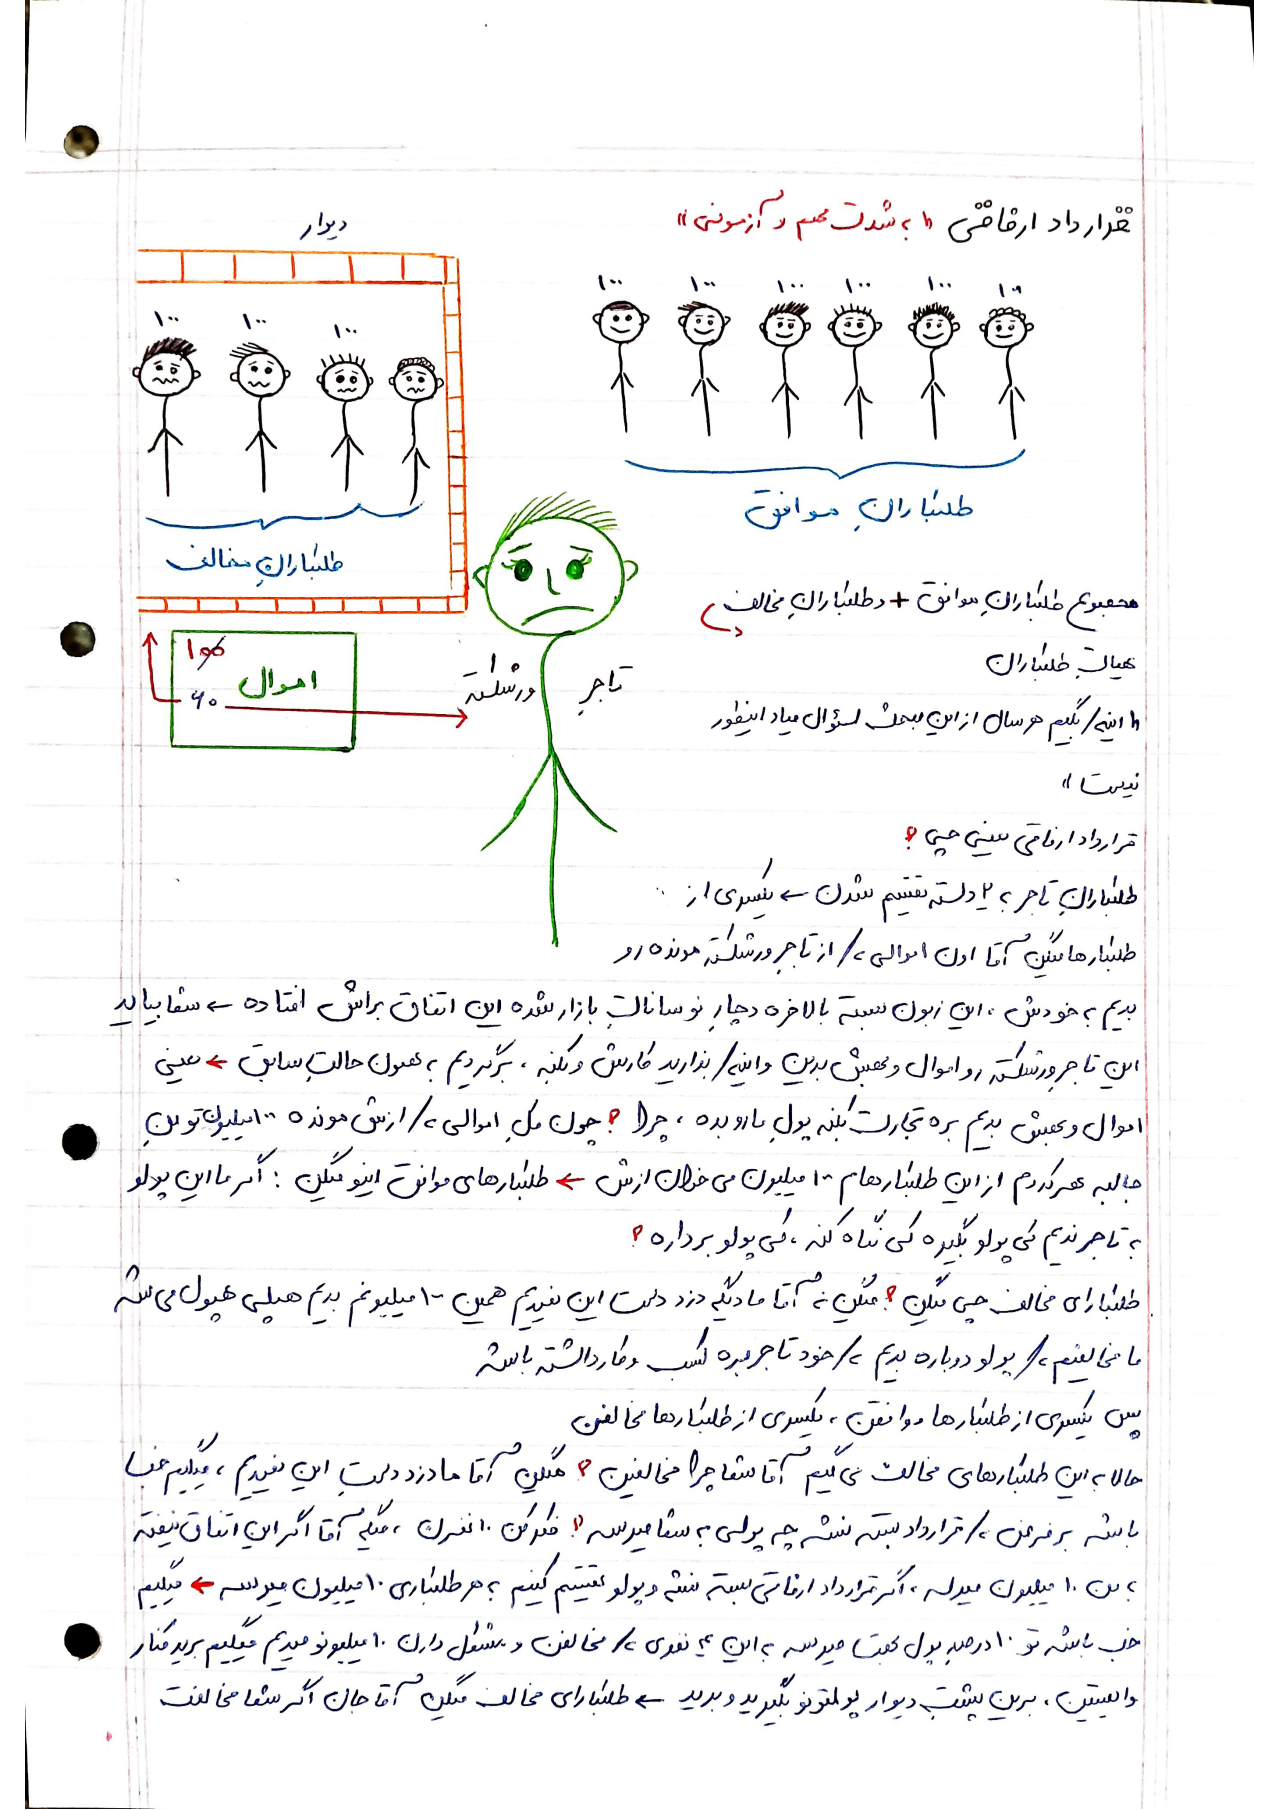 قرارداد ارفاقی «به شدت مهم و آزمونی»
دیوار
۱۰۰ ۱۰۰ ۱۰۰ ۱۰۰ ۱۰۰ ۱۰۰
۱۰۰ ۱۰۰ ۱۰۰
طلبکارانِ موافق
طلبکارانِ مخالف
مجموع طلبکارانِ موافق + و طلبکارانِ مخالف
هیات طلبکاران
۱۰۰
اموال
۶۰
تاجر ورشکسته
«اینکه بگیم هر سال از این مبحث سؤال میاد اینطور
نیست»
قرارداد ارفاقی یعنی چی؟
طلبکارانِ تاجر به ۲ دسته تقسیم شدن ← یکسری از
طلبکارها میگن آقا اون اموالی که از تاجر ورشکسته مونده رو
بدیم به خودش، این زبون بسته بالاخره دچار نوساناتِ بازار شده این اتفاق براش افتاده ← شما بیاید
این تاجر ورشکسته رو اموال و بهش بدین و اینکه بذارید کارش و بکنه، برگردیم به همون حالتِ سابق ← یعنی
اموال و بهش بدیم بره تجارت بکنه پولِ ما رو بده، چرا؟ چون کلِ اموالی که ازش مونده ۱۰۰ میلیون تومنِ
جالبه هر کدوم از این طلبکارهام ۱۰۰ میلیون می‌خوان ازش ← طلبکارهای موافق اینو میگن: اگر ما این پولو
به تاجر ندیم کی پولو بگیره کی نگاه کنه، کی پولو برداره؟
طلبکارای مخالف چی میگن؟ میگن نه آقا ما دیگه دزد دست این نمیدیم همین ۱۰۰ میلیونم بدیم هپلی هپول می‌کنه
ما مخالفیم که پولو دوباره بدیم که خود تاجر بره کسب و کار داشته باشه
پس یکسری از طلبکارها موافقن، یکسری از طلبکارها مخالفن
حالا به این طلبکارهای مخالف می‌گیم آقا شما چرا مخالفین؟ میگن آقا ما دزد دستِ این نمیدیم، میگیم خب
باشه بر فرض که قرارداد بسته نشه چه پولی به شما میرسه؟ فکر کن ۱۰ نفرن، میگه آقا اگر این اتفاق نیفته
به من ۱۰ میلیون میرسه، اگر قرارداد ارفاقی بسته نشه و پولو تقسیم کنیم به هر طلبکاری ۱۰ میلیون میرسه ← میگیم
خب باشه تو ۱۰ درصدِ پول بهت میرسه به این ۴ نفری که مخالفن و مشکل دارن ۱۰ میلیونو میدیم میگیم برید کنار
وایستین، برین پشتِ دیوار پولتونو بگیرید و برید ← طلبکارای مخالف میگن آقا جان اگر شما مخالفت